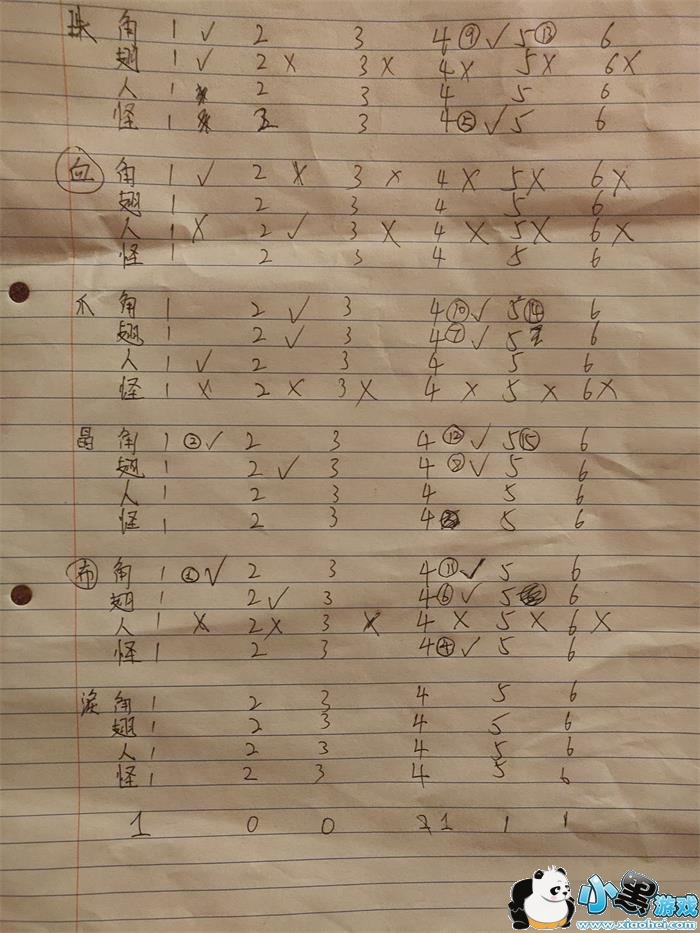 珠 角 1 ✓ 2 3 4 ⑨ ✓ 5 ⑬ 6
翅 1 ✓ 2 × 3 × 4 × 5 × 6 ×
人 1 2 3 4 5 6
怪 1 2 3 4 ⑤ ✓ 5 6
血 角 1 ✓ 2 × 3 × 4 × 5 × 6 ×
翅 1 2 3 4 5 6
人 1 × 2 ✓ 3 × 4 × 5 × 6 ×
怪 1 2 3 4 5 6
爪 角 1 2 ✓ 3 4 ⑩ ✓ 5 ⑭ 6
翅 1 2 ✓ 3 4 ⑦ ✓ 5 6
人 1 ✓ 2 3 4 5 6
怪 1 × 2 × 3 × 4 × 5 × 6 ×
晶 角 1 ② ✓ 2 3 4 ⑫ ✓ 5 ⑮ 6
翅 1 2 ✓ 3 4 ⑧ ✓ 5 6
人 1 2 3 4 5 6
怪 1 2 3 4 5 6
布 角 1 ✓ 2 3 4 ⑪ ✓ 5 6
翅 1 2 ✓ 3 4 ⑥ ✓ 5 6
人 1 × 2 × 3 × 4 × 5 × 6 ×
怪 1 2 3 4 ④ ✓ 5 6
泪 角 1 2 3 4 5 6
翅 1 2 3 4 5 6
人 1 2 3 4 5 6
怪 1 2 3 4 5 6
1 0 0 1 1 1
小黑游戏
www.xiaohei.com